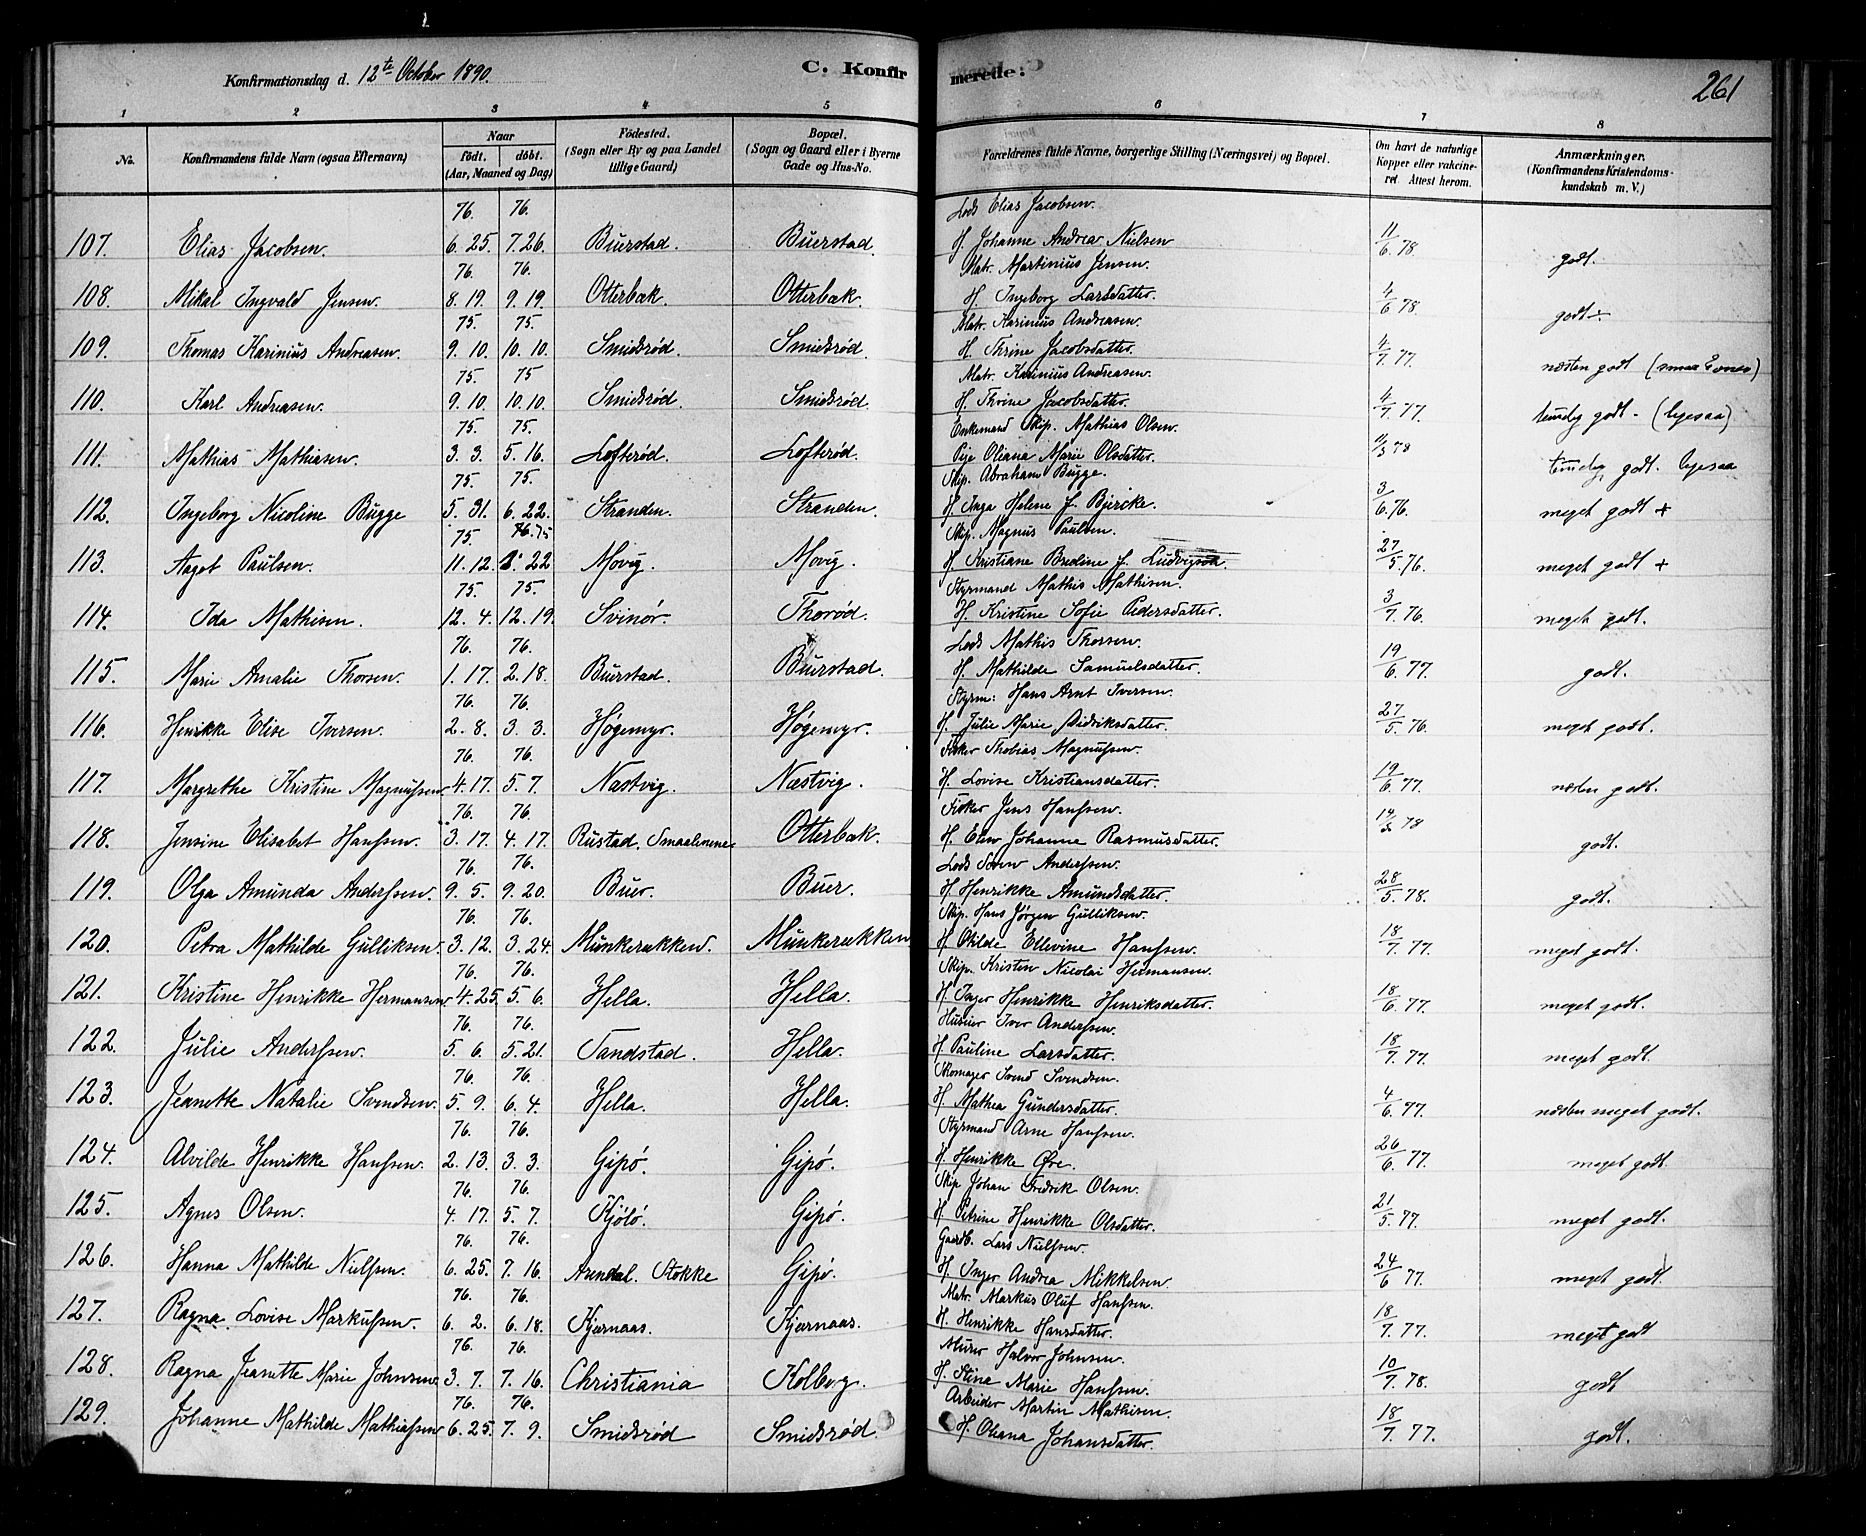 Konfirmationsdag d. 12te October 1890.
C. Konfirmerede:
261
1 2 3 4 5 6 7 8
No. Konfirmandens fulde Navn (ogsaa Efternavn) Naar födt. döbt. (Aar, Maaned og Dag) Födested. (Sogn eller By og paa Landet tillige Gaard) Bopæl. (Sogn og Gaard eller i Byerne Gade og Hus-No. Forældrenes fulde Navne, borgerlige Stilling (Næringsvei) og Bopæl. Om havt de naturlige Kopper eller vakcineret Attest herom. Anmærkninger. (Konfirmandens Kristendomskundskab m. V.)
76. 76. Lods Elias Jacobsen.
107. Elias Jacobsen. 6. 25. 7. 26. Buerstad. Buerstad. H. Johanne Andrea Nielsen 11/6 78. godt.
76. 76. Matr. Martinius Jensen.
108. Mikal Ingvald Jensen. 8. 19. 9. 19. Otterbæk. Otterbæk. H. Ingeborg Larsdatter. 4/6 78. godt
75. 75. Matr. Karinius Andreasen.
109. Thomas Karinius Andreasen. 9. 10. 10. 10. Smidsrød. Smidsrød. H. Thrine Jacobsdatter. 4/7. 77. næsten godt
75. 75 Matr. Karinius Andreasen.
110. Karl Andreasen. 9. 10. 10. 10. Smidsrød. Smidsrød. H. Thrine Jacobsdatter. 4/7. 77. godt. (ligesaa)
75. 75. Enkemand Skip. Mathias Olsen.
111. Mathias Mathiasen. 3. 3. 5. 16. Lofterød. Lofterød. Pige Oliana Marie Olsdatter. 11/3 78 godt. ligesaa
75. 75. Skip. Abraham Bugge.
112. Ingeborg Nicoline Bugge 5. 31. 6. 22. Stranden. Stranden. H. Inga Helene f. Bjercke. 3/6. 76. meget godt +
75. 76. 75 Skip. Magnus Paulsen.
113. Aagot Paulsen. 11. 12. 22 Movig. Movig. H. Kristiane Bredine f. Ludvigsen. 27/5. 76. meget godt +
75. 75. Styrmand Mathis Mathisen.
114. Ida Mathisen. 12. 4. 12. 19. Svinør. Thorød. H. Kristine Sofie Pedersdatter. 3/7. 76. meget godt.
76. 76. Lods Mathis Thorsen.
115. Marie Amalie Thorsen. 1. 17. 2. 18. Buerstad. Buerstad. H. Mathilde Samuelsdatter. 19/6. 77. godt.
76. 76. Styrm: Hans Arnt Iversen.
116. Henrikke Elise Iversen. 2. 8. 3. 3. Høgemyr. Høgemyr. H. Julie Marie Didriksdatter. 27/5. 76. meget godt.
76. 76. Fisker Thobias Magnussen.
117. Margrethe Kristine Magnussen. 4. 17. 5. 7. Næstvig. Næstvig. H. Lovise Kristiansdatter. 19/6. 77. næsten godt.
76. 76. Fisker Jens Hanssen.
118. Jensine Elisabet Hanssen. 3. 17. 4. 17. Rustad. Smaalenene. Otterbæk. H. Elen Johanne Rasmusdatter. 14/3 78 godt.
76. 76. Lods Søren Anderssen.
119. Olga Amunda Anderssen. 9. 5. 9. 20. Buer. Buer. H. Henrikke Amundsdatter. 28/5. 78. godt.
76. 76. Skip. Hans Jørgen Gulliksen.
120. Petra Mathilde Gulliksen. 3. 12. 3. 24. Munkerækken. Munkerækken H. Otilde Ellevine Hanssen. 18/7. 77. meget godt.
76. 76. Skip. Kristen Nicolai Hermansen.
121. Kristine Henrikke Hermansen. 4. 25. 5. 6. Hella. Hella. H. Inger Henrikke Henriksdatter. 18/6. 77. meget godt.
76. 76. Huseier Iver Anderssen.
122. Julie Anderssen. 5. 6. 5. 21. Sandstad. Hella. H. Pauline Larsdatter. 18/7. 77. meget godt.
76. 76. Skomager Svend Svendsen.
123. Jeanette Natalie Svendsen. 5. 9. 6. 4. Hella. Hella. H. Mathea Gundersdatter. 4/6. 77. næsten meget godt.
76. 76. Styrmand Arne Hanssen.
124. Alvilde Henrikke Hanssen. 2. 13. 3. 3. Gipø. Gipø. H. Henrikke Øre. 26/6. 77. meget godt.
76. 76. Skip. Johan Fredrik Olsen.
125. Agnes Olsen. 4. 17. 5. 7. Kjølø. Gipø. H. Petrine Henrikke Olsdatter. 21/5. 77. meget godt.
76. 76. Gaardb. Lars Nielssen.
126. Hanna Mathilde Nielssen. 6. 25. 7. 16. Arendal. Stokke Gipø. H. Inger Andrea Mikkelsen. 24/6 77. meget godt.
76. 76. Matr. Markus Oluf Hanssen.
127. Ragna Lovise Markussen. 6. 2. 6. 18. Kjærnaas. Kjærnaas. H. Henrikke Hansdatter. 18/7. 77. meget godt
76. 76. Murer Halvor Johnsen.
128. Ragna Jeanette Marie Johnsen. 3. 7. 7. 16. Christiania Kolberg. H. Stina Marie Hanssen. 10/7. 78. godt
76. 76. Arbeider Martin Mathisen.
129. Johanne Mathilde Mathiassen 6. 25. 7. 9. Smidsrød Smidsrød. H. Oliana Johansdatter. 18/7. 77. godt.